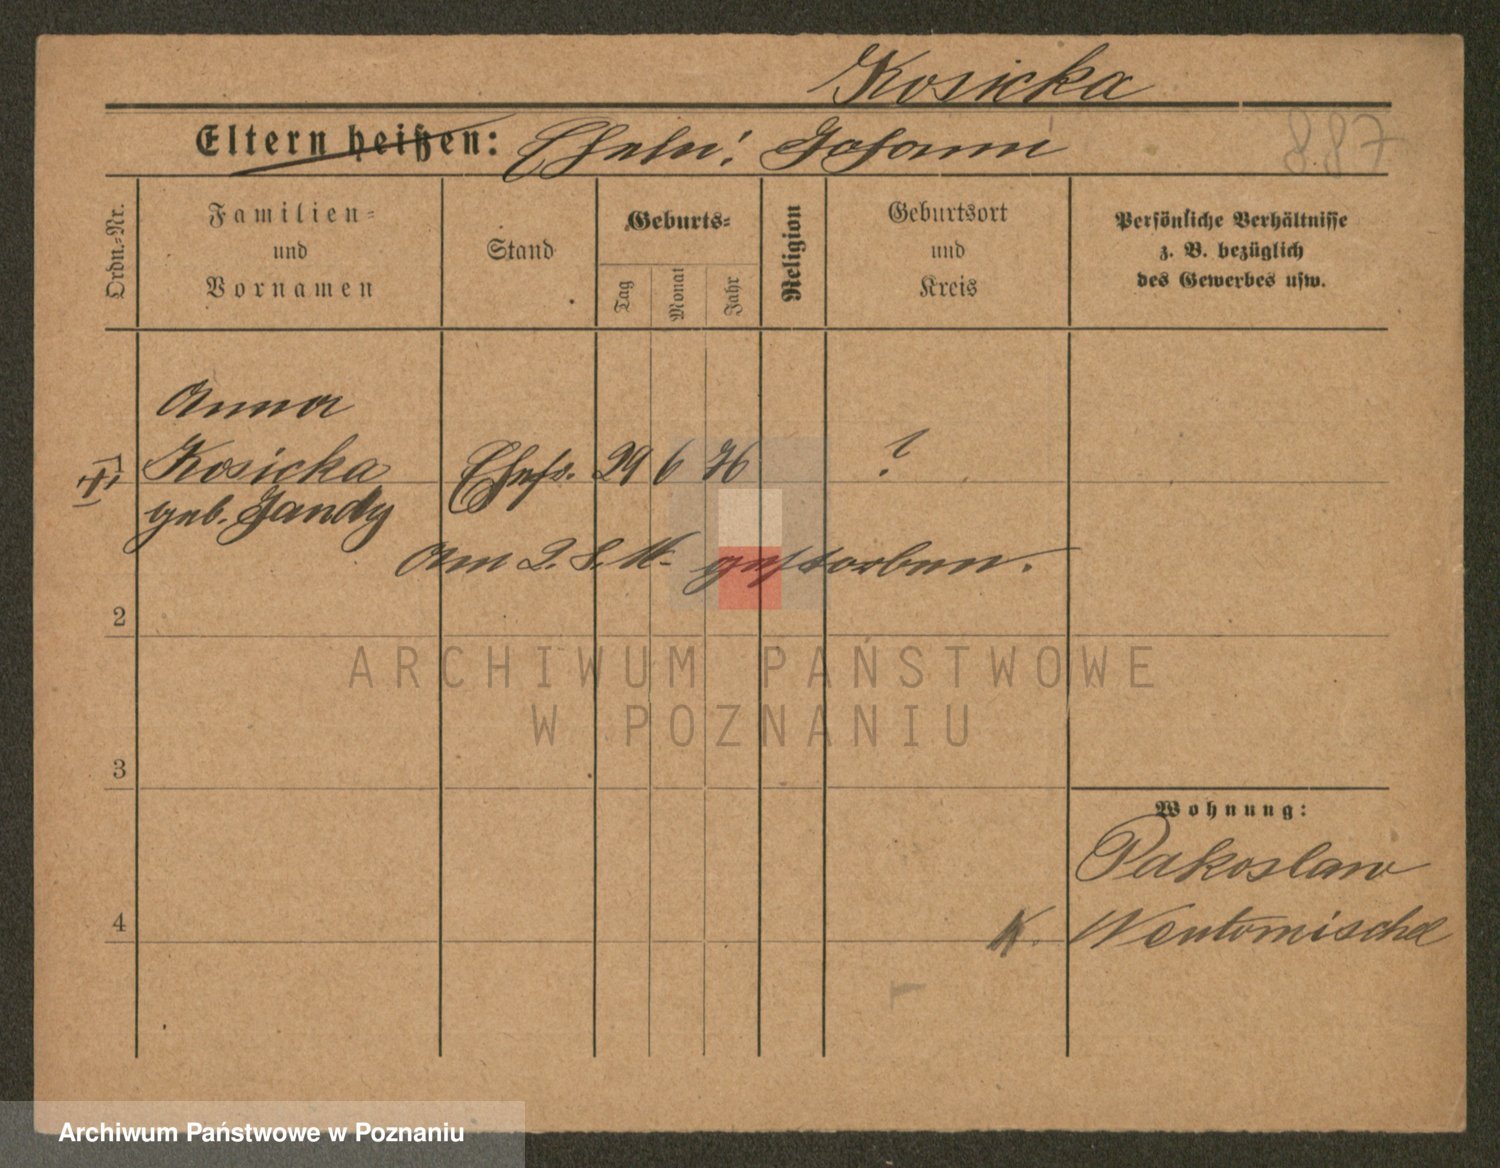 Kosicka
Eltern heißen: Ehelu: Johann
887
Ordn.-Nr.
Familien-
und
Vornamen
Stand
Geburts-
Tag
Monat
Jahr
Religion
Geburtsort
und
Kreis
Persönliche Verhältnisse
z. B. bezüglich
des Gewerbes usw.
Anna
Kosicka
geb. Jandy
Ehefr. 29 6 76 ?
Am 2. 8. gestorben.
2
3
4
Wohnung:
Pakoslaw
K. Neutomischel
ARCHIWUM PAŃSTWOWE
W POZNANIU
Archiwum Państwowe w Poznaniu